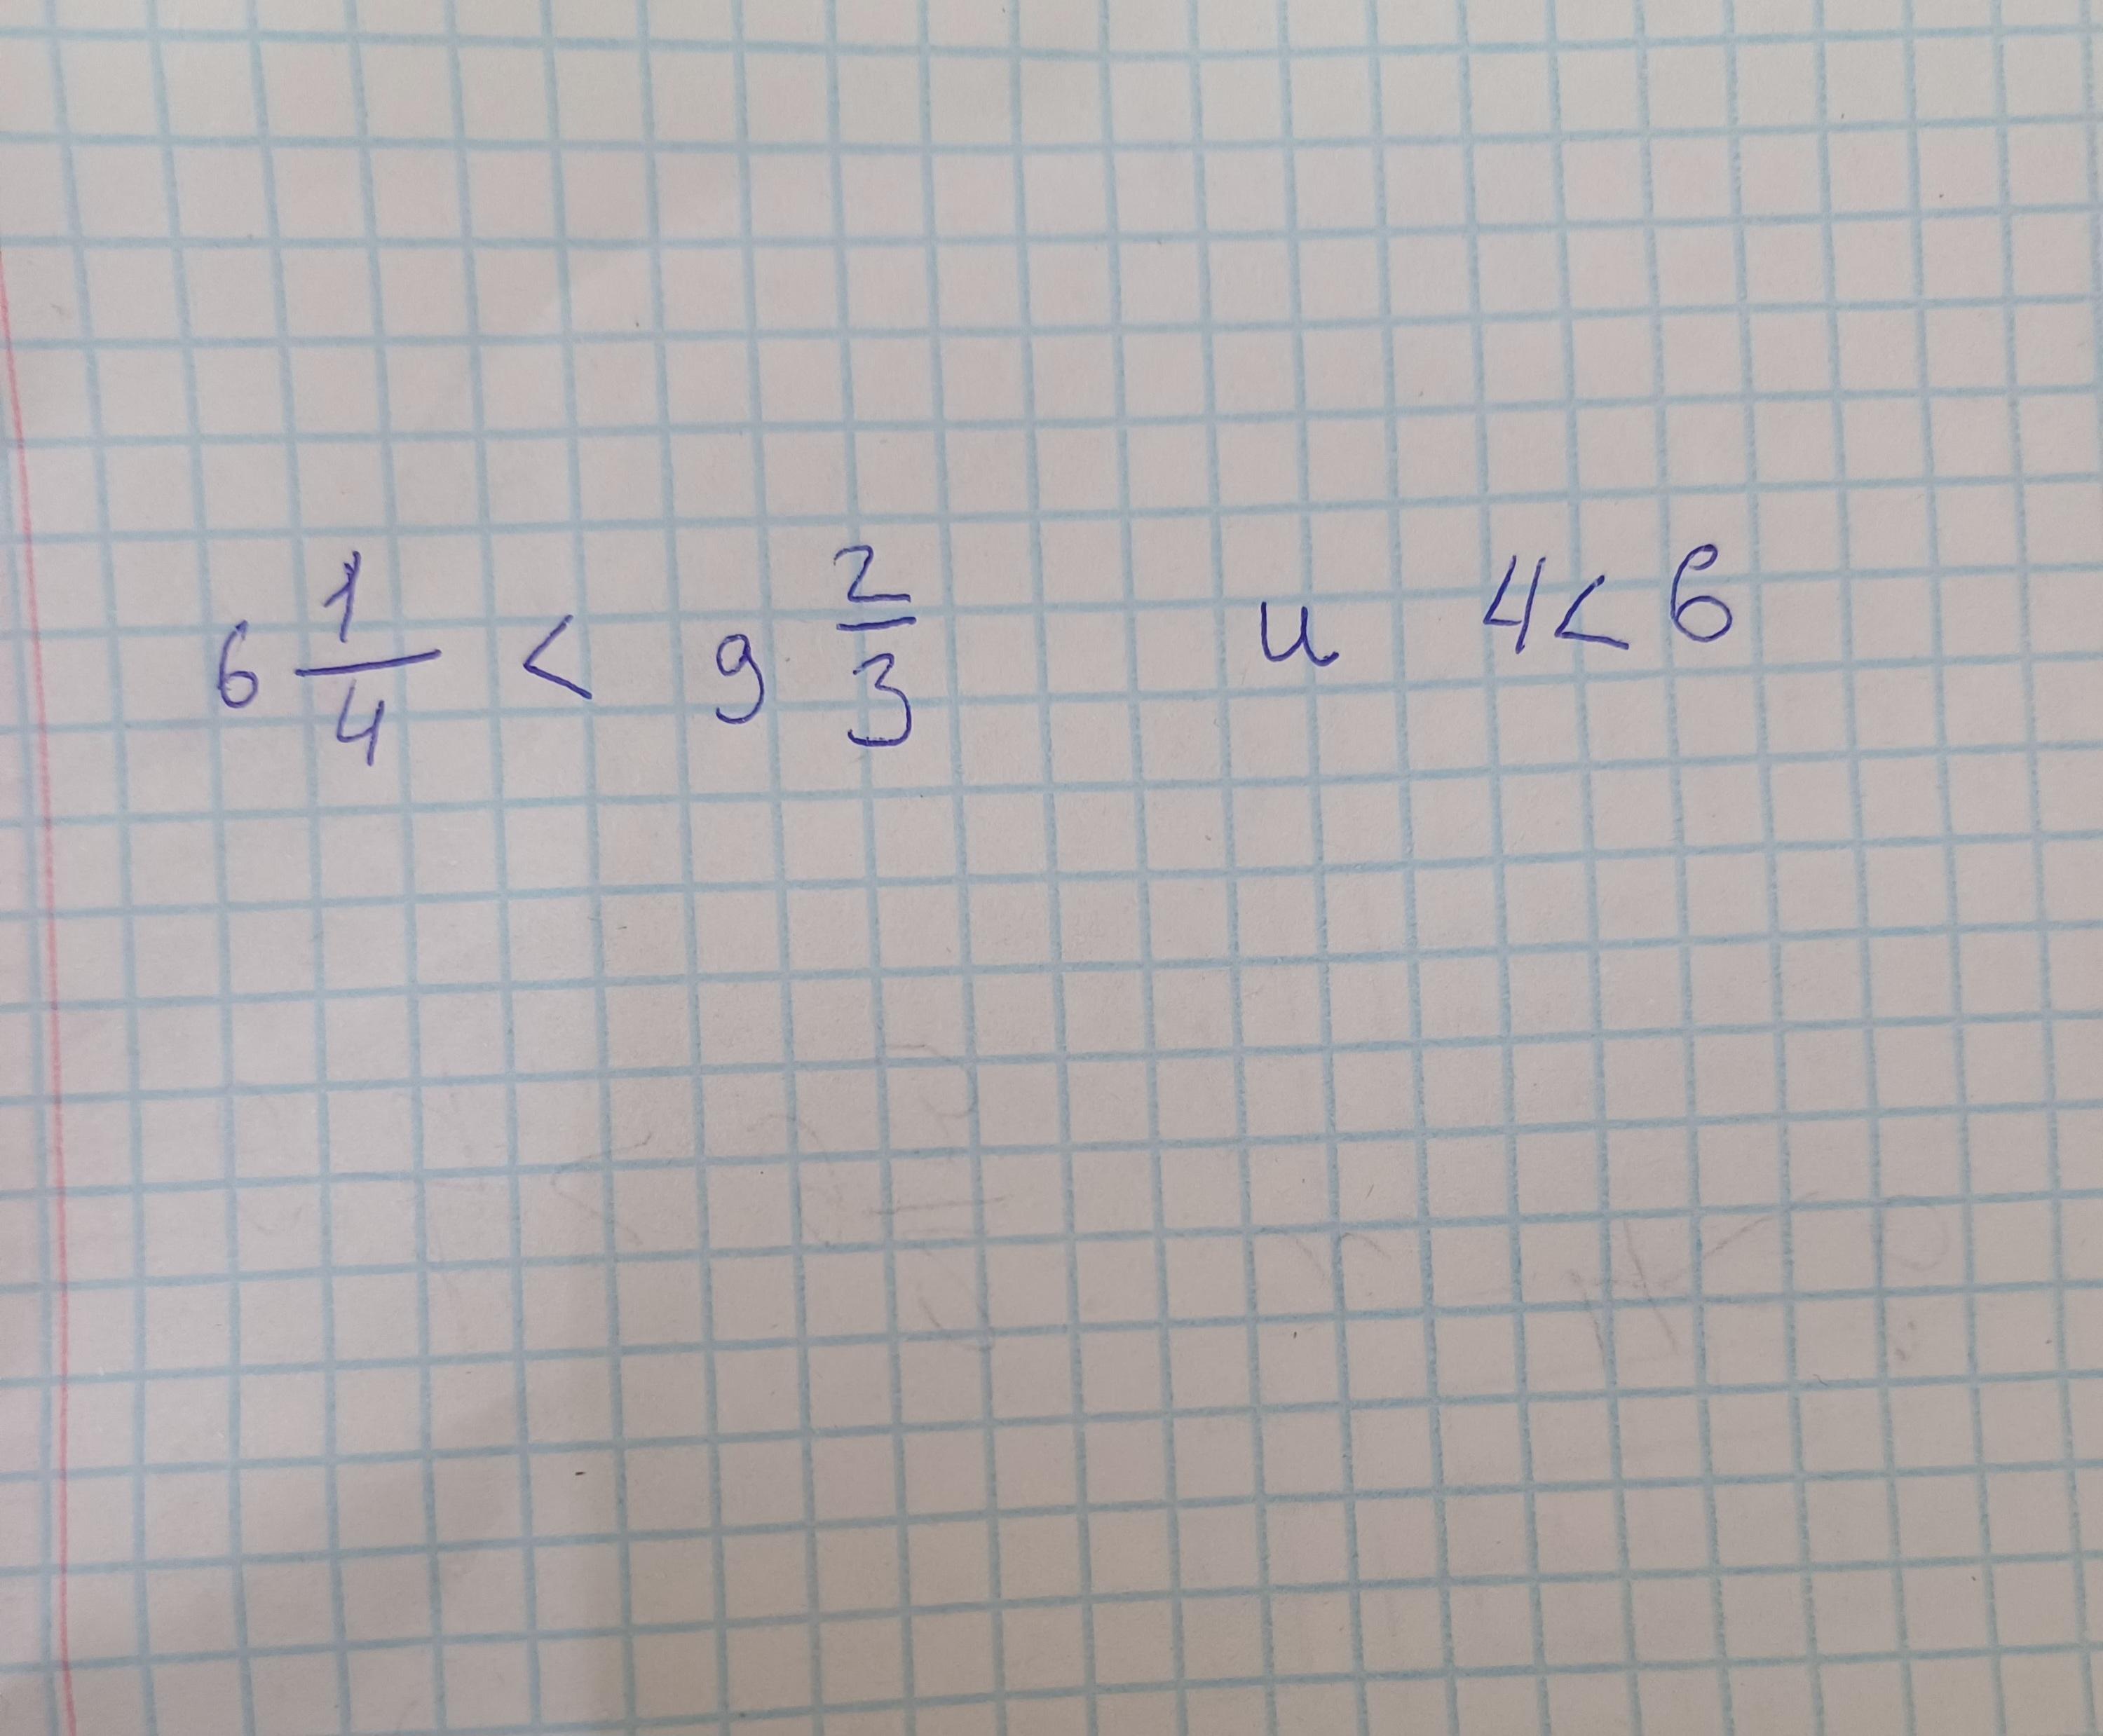 6 1/4 < 9 2/3 и 4 < 6